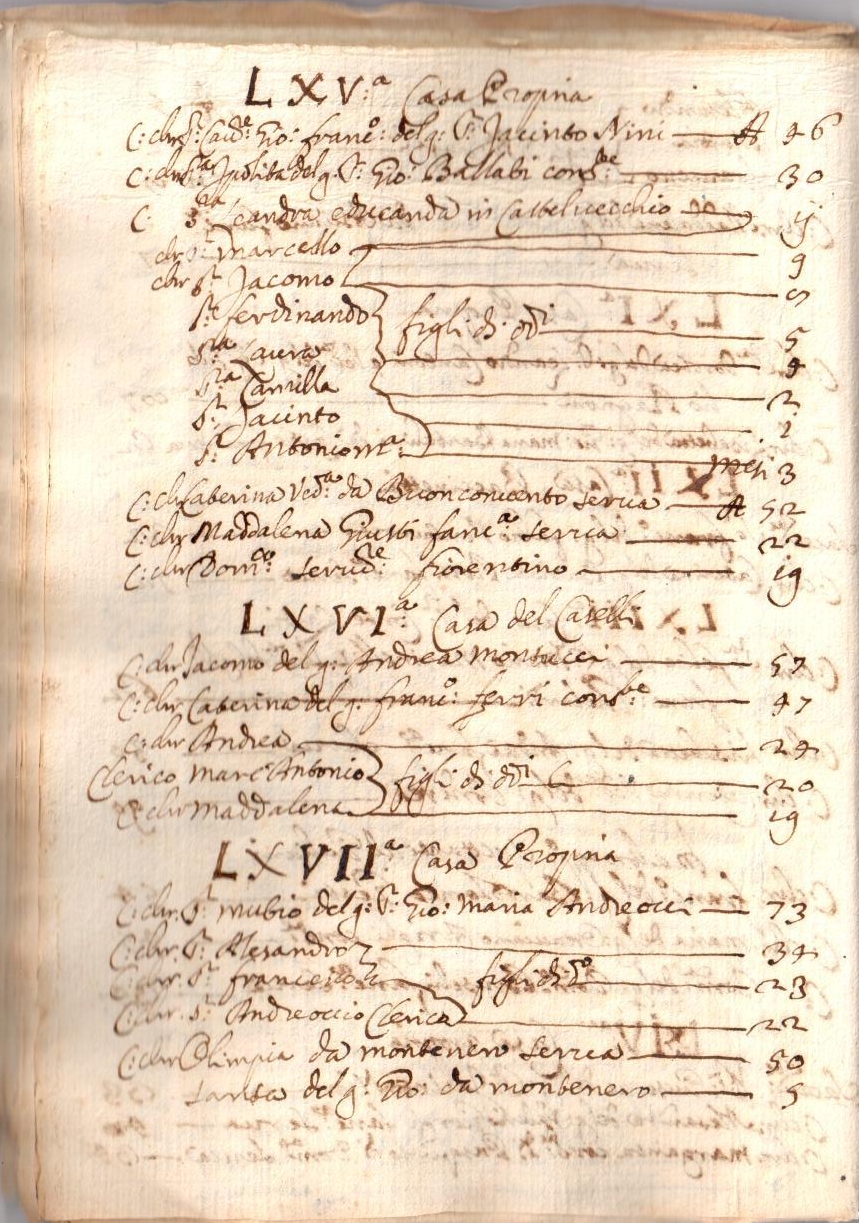 LXV.ª Casa Propria
C: chr: Sr: Cau.re Gio: Franc.o: del q: Sr: Jacinto Nini A 46
C: chr: S.ra Ipolita del q. Sr: Gio: Ballati cons.te 30
C: S.ra educanda in Casteluecchio ij
chr Sr: Marcello 9
chr Sr: Jacomo 8
Sr: Ferdinando figli di dd.i 5
S.ra Laura 4
S.ra Camilla 2
Sr: Jacinto i
Sr: Antonio M.a: mesi 3
C: chr Caterina Ved.a da Buonconuento serua A 52
C: chr Maddalena Giusti fanc.a serua 22
C: chr Dom.co: seruid.re fiorentino ig
LXVI.ª Casa del Caselli
C: chr Jacomo del q: Andrea Montucci 57
C: chr Caterina del q: franc.o: ferri cons.te 47
C: chr Andrea 24
Clerico Marc'Antonio figli di dd.i C 20
C: chr Maddalena ig
LXVII.ª Casa Propria
C: chr. Sr: Mutio del q: Sr: Gio: Maria Andreocci 73
C: chr. Sr: Alesandro 34
C: chr. Sr: francesco figli di d.o 23
C: chr. Sr: Andreoccio Clerico 22
C: chr Olimpia da montenero serua 50
Santa del q: Gio: da montenero 5